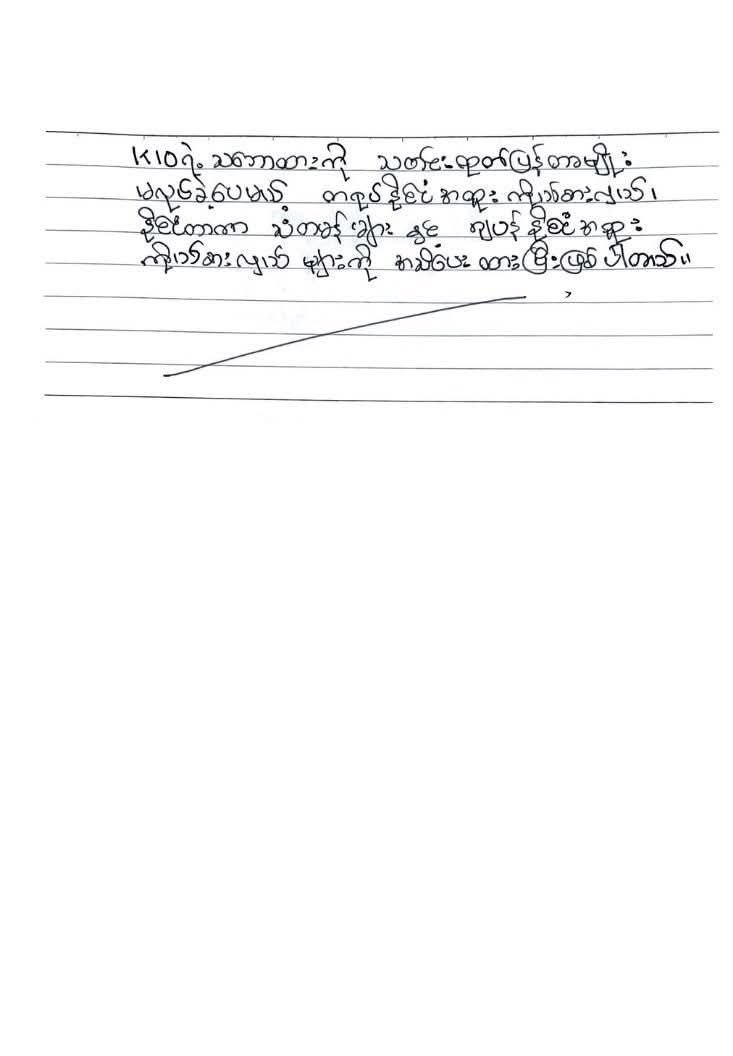 KIOရဲ့ သဘောထားကို သတင်းထုတ်ပြန်တာမျိုး
မလုပ်ခဲ့ပေမယ့် တရုတ်နိုင်ငံ အထူး ကိုယ်စားလှယ်၊
နိုင်ငံတကာ သံတမန်များ နှင့် ဂျပန်နိုင်ငံ အထူး
ကိုယ်စားလှယ် များကို အသိပေး ထားပြီးဖြစ် ပါတယ်။